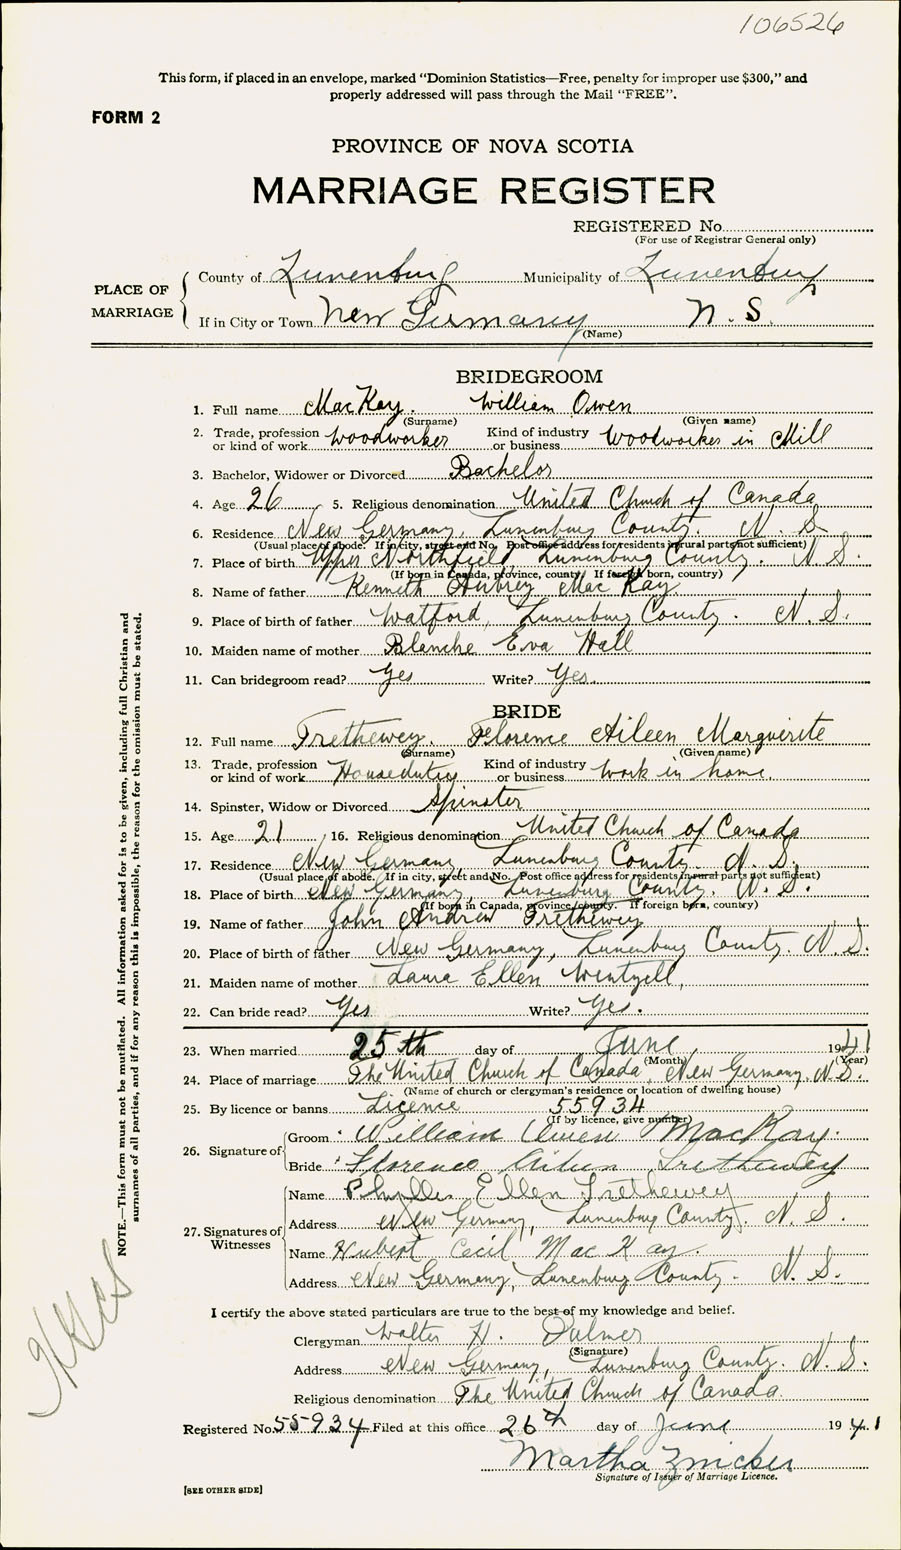 106526
This form, if placed in an envelope, marked "Dominion Statistics—Free, penalty for improper use $300," and
properly addressed will pass through the Mail "FREE".
FORM 2
PROVINCE OF NOVA SCOTIA
MARRIAGE REGISTER
REGISTERED No.
(For use of Registrar General only)
PLACE OF MARRIAGE
County of Lunenburg Municipality of Lunenburg
If in City or Town New Germany N. S.
(Name)
BRIDEGROOM
1. Full name MacKay. William Owen
(Surname) (Given name)
2. Trade, profession or kind of work Woodworker Kind of industry or business Woodworker in Mill
3. Bachelor, Widower or Divorced Bachelor
4. Age 26 5. Religious denomination United Church of Canada
6. Residence New Germany, Lunenburg County. N. S.
(Usual place of abode. If in city, street and No. Post office address for residents in rural parts not sufficient)
7. Place of birth Upper Northfield Lunenburg County. N. S.
(If born in Canada, province, county. If foreign born, country)
8. Name of father Kenneth Aubrey MacKay
9. Place of birth of father Watford, Lunenburg County. N. S.
10. Maiden name of mother Blanche Eva Hall
11. Can bridegroom read? Yes Write? Yes.
BRIDE
12. Full name Trethewey. Florence Aileen Marguerite
(Surname) (Given name)
13. Trade, profession or kind of work Houseduties Kind of industry or business Work in home.
14. Spinster, Widow or Divorced Spinster
15. Age 21 16. Religious denomination United Church of Canada
17. Residence New Germany, Lunenburg County. N. S.
(Usual place of abode. If in city, street and No. Post office address for residents in rural parts not sufficient)
18. Place of birth New Germany, Lunenburg County. N. S.
(If born in Canada, province/county. If foreign born, country)
19. Name of father John Andrew Trethewey
20. Place of birth of father New Germany, Lunenburg County. N. S.
21. Maiden name of mother Laura Ellen Wentzell,
22. Can bride read? Yes Write? Yes.
23. When married 25th day of June 1941
(Month) (Year)
24. Place of marriage The United Church of Canada, New Germany, N. S.
(Name of church or clergyman's residence or location of dwelling house)
25. By licence or banns Licence 55934
(If by licence, give number)
26. Signature of
Groom William Owen MacKay.
Bride Florence Aileen Trethewey
27. Signatures of Witnesses
Name Phyllis Ellen Trethewey
Address New Germany, Lunenburg County. N. S.
Name Hubert Cecil MacKay.
Address New Germany, Lunenburg County. N. S.
I certify the above stated particulars are true to the best of my knowledge and belief.
Clergyman Walter H.
(Signature)
Address New Germany, Lunenburg County. N. S.
Religious denomination The United Church of Canada.
Registered No. 55934 Filed at this office 26th day of June 1941
Martha Zwicker
Signature of Issuer of Marriage Licence.
[SEE OTHER SIDE]
NOTE.—This form must not be mutilated. All information asked for is to be given, including full Christian and
surnames of all parties, and if for any reason this is impossible, the reason for the omission must be stated.